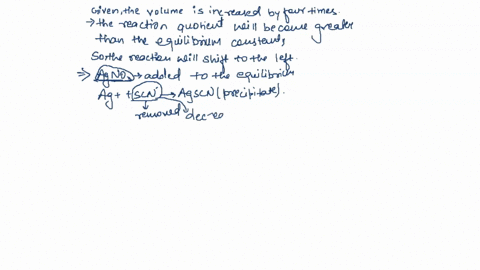 Given, the volume is increased by four times.
→ the reaction quotient will become greater
than the equilibrium constant,
So the reaction will shift to the left.
⇒ AgNO3 → added to the equilibrium
Ag+ + SCN- → AgSCN (precipitate).
↓
removed decrea